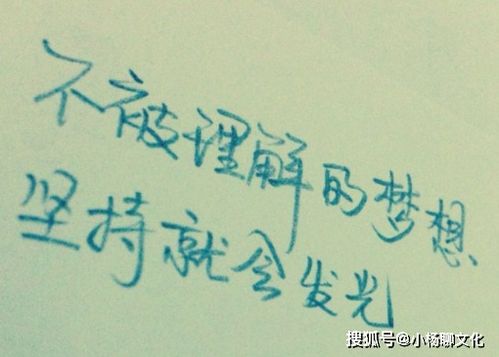 不被理解的梦想
坚持就会发光
搜狐号@小杨聊文化